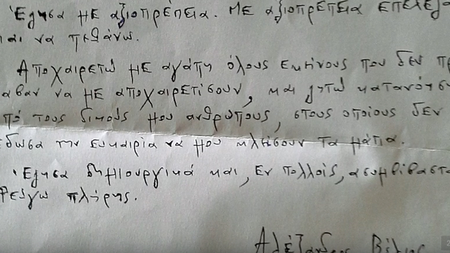 Έζησα με αξιοπρέπεια. Με αξιοπρέπεια επέλεξα
και να πεθάνω.
Αποχαιρετώ με αγάπη όλους εκείνους που δεν πρ
αβαν να με αποχαιρετίσουν, και ζητώ κατανόησ
πό τους δικούς μου ανθρώπους, στους οποίους δεν
έδωσα την ευκαιρία να μου κλείσουν τα μάτια.
Έζησα δημιουργικά και, εν πολλοίς, ασυμβίβαστα
Φεύγω πλήρης.
Αλέξανδρος Βέλιος